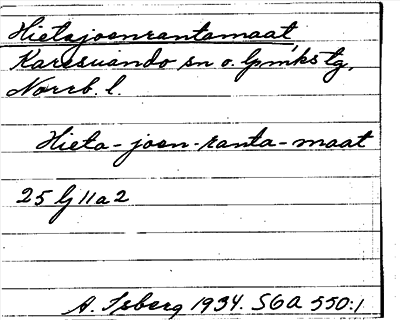 Hietajoenrantamaat
Karesuando sn o. lpmkstg,
Norrb. l.
Hieta-joen-ranta-maat
25 lj 11 a 2
A. Isberg 1934. SGA 550:1